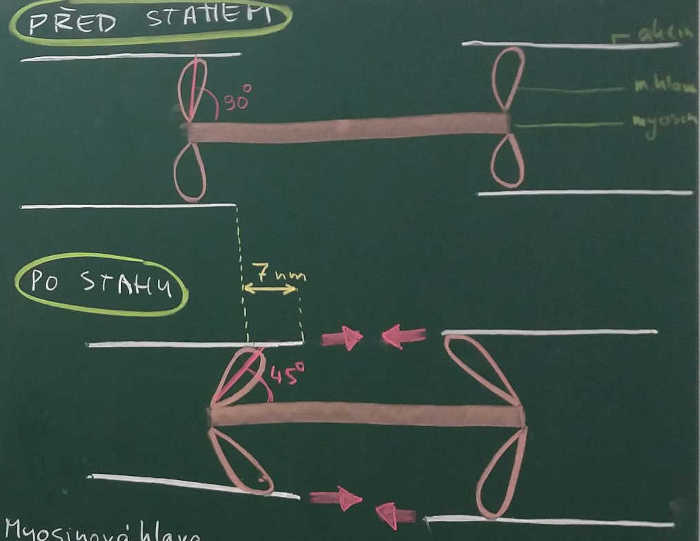 PŘED STAHEM
aktin
90°
m. hlava
myosin
PO STAHU
7 nm
45°
Myosinová hlava